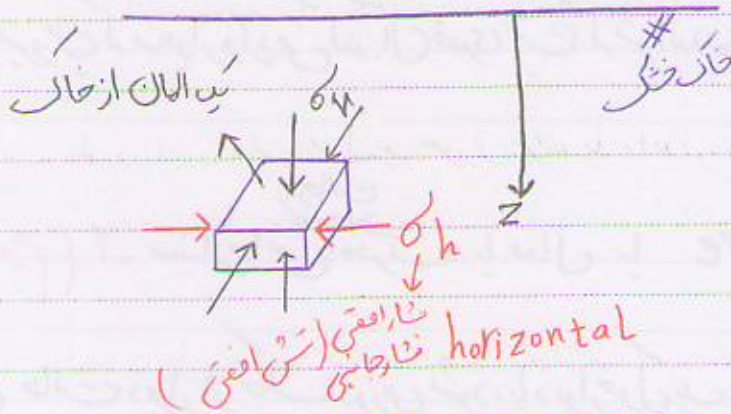 # خاک خشک
یک المان از خاک
σv
z
σh
فشار افقی (تنش افقی)
فشار جانبی horizontal